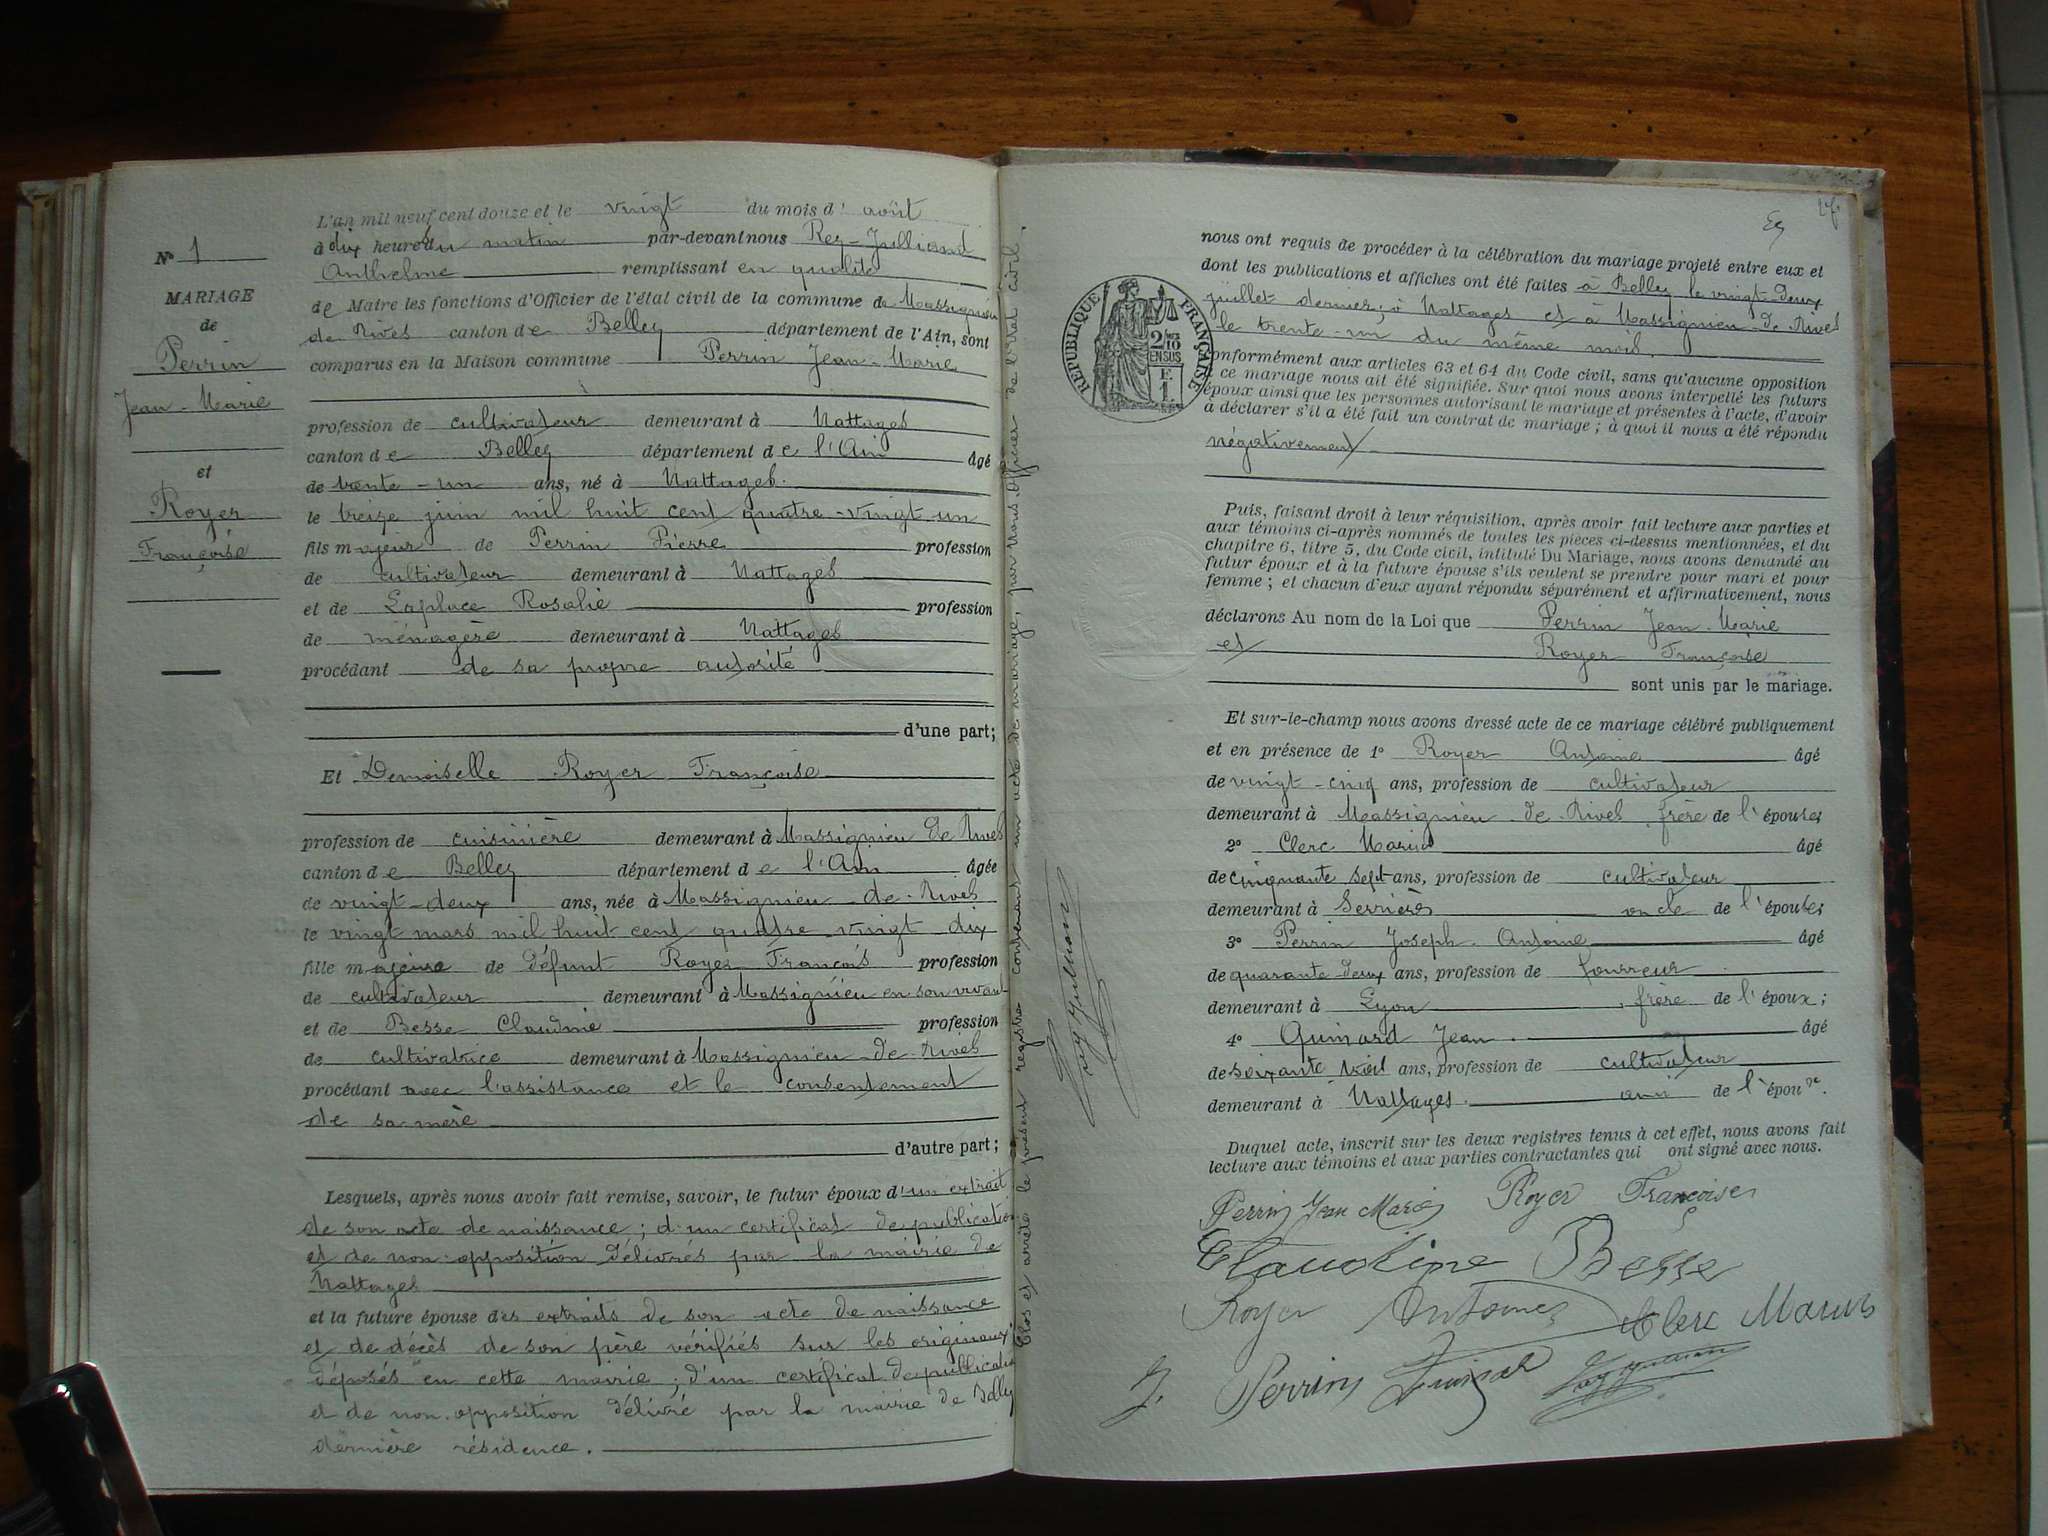 L'an mil neuf cent douze et le vingt du mois d' août
à dix heures du matin par-devant nous Rey-Julliand
Anthelme remplissant en qualité
de Maire les fonctions d'Officier de l'état civil de la commune de Massignieu
de Rives canton de Belley département de l'Ain, sont
comparus en la Maison commune Perrin Jean-Marie
profession de cultivateur demeurant à Nattages
canton de Belley département de l'Ain âgé
de trente-un ans, né à Nattages.
le treize juin mil huit cent quatre-vingt un
fils majeur de Perrin Pierre profession
de cultivateur demeurant à Nattages
et de Laplace Rosalie profession
de ménagère demeurant à Nattages
procédant de sa propre autorité
d'une part;
Et Demoiselle Royer Françoise
profession de cuisinière demeurant à Massignieu de Rives
canton de Belley département de l'Ain âgée
de vingt-deux ans, née à Massignieu-de-Rives
le vingt mars mil huit cent quatre-vingt dix
fille majeure de défunt Royer François profession
de cultivateur demeurant à Massignieu en son vivant
et de Besse Claudine profession
de cultivatrice demeurant à Massignieu-de-Rives
procédant avec l'assistance et le consentement
de sa mère
d'autre part;
Lesquels, après nous avoir fait remise, savoir, le futur époux d'un extrait
de son acte de naissance; d'un certificat de publication
et de non-opposition délivrés par la mairie de
Nattages
et la future épouse des extraits de son acte de naissance
et de décès de son père vérifiés sur les originaux
déposés en cette mairie; d'un certificat de publication
et de non-opposition délivré par la mairie de Belley
dernière résidence.
N° 1
MARIAGE
de
Perrin
Jean-Marie
et
Royer
Françoise
Clos et arrêté le présent registre contenant un acte de mariage, par nous Officier de l'état civil.
Rey Julliand
27
RÉPUBLIQUE FRANÇAISE
2/10
EN SUS
F.
1.
nous ont requis de procéder à la célébration du mariage projeté entre eux et
dont les publications et affiches ont été faites à Belley le vingt-deux
juillet dernier; à Nattages et à Massignieu-de-Rives
le trente-un du même mois.
conformément aux articles 63 et 64 du Code civil, sans qu'aucune opposition
à ce mariage nous ait été signifiée. Sur quoi nous avons interpellé les futurs
époux ainsi que les personnes autorisant le mariage et présentes à l'acte, d'avoir
à déclarer s'il a été fait un contrat de mariage; à quoi il nous a été répondu
négativement
Puis, faisant droit à leur réquisition, après avoir fait lecture aux parties et
aux témoins ci-après nommés de toutes les pièces ci-dessus mentionnées, et du
chapitre 6, titre 5, du Code civil, intitulé Du Mariage, nous avons demandé au
futur époux et à la future épouse s'ils veulent se prendre pour mari et pour
femme; et chacun d'eux ayant répondu séparément et affirmativement, nous
déclarons Au nom de la Loi que Perrin Jean-Marie
et Royer Françoise
sont unis par le mariage.
Et sur-le-champ nous avons dressé acte de ce mariage célébré publiquement
et en présence de 1° Royer Antoine âgé
de vingt-cinq ans, profession de cultivateur
demeurant à Massignieu-de-Rives, frère de l'épouse;
2° Clerc Marius âgé
de cinquante sept ans, profession de cultivateur
demeurant à Serrières oncle de l'épouse;
3° Perrin Joseph-Antoine âgé
de quarante-deux ans, profession de fourreur
demeurant à Lyon, frère de l'époux;
4° Guinard Jean. âgé
de soixante trois ans, profession de cultivateur
demeurant à Nattages. ami de l'époux.
Duquel acte, inscrit sur les deux registres tenus à cet effet, nous avons fait
lecture aux témoins et aux parties contractantes qui ont signé avec nous.
Perrin Jean Marie Royer Françoise
Claudine Besse
Royer Antoine Clerc Marius
J. Perrin Guinard Rey Julliand